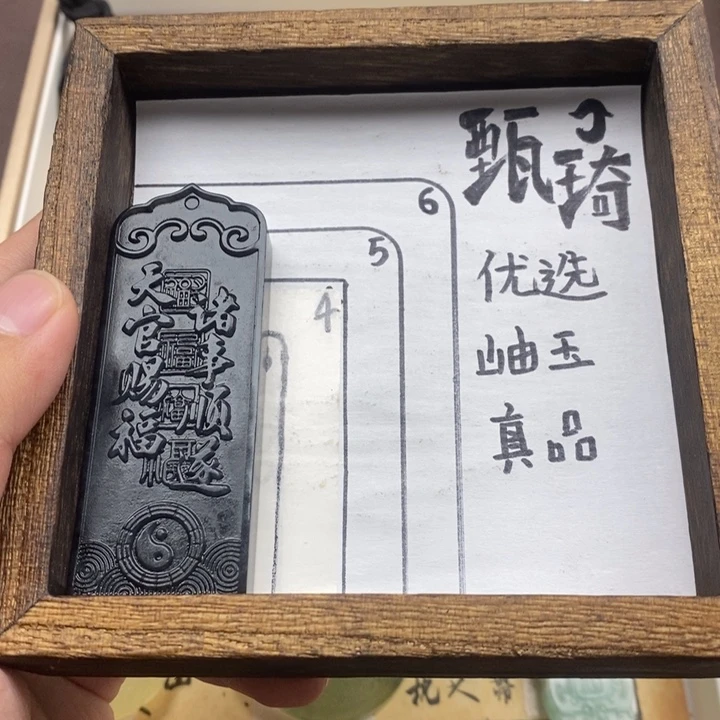 甄琦
优选
岫玉
真品
6
5
4
天官赐福
诸事顺遂